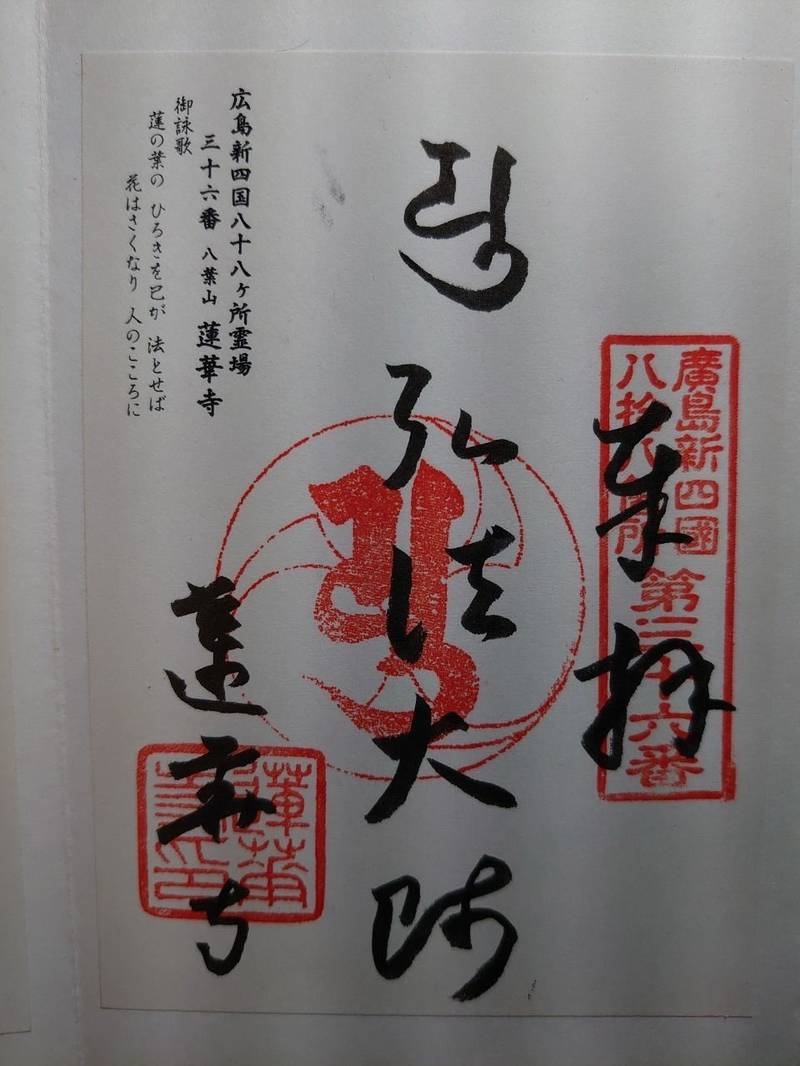 奉拝
廣島新四國
八拾八箇所
第三十六番
弘法大師
広島新四国八十八ヶ所霊場
三十六番 八葉山 蓮華寺
御詠歌
蓮の葉の ひろきを巳が 法とせば
花はさくなり 人のこころに
蓮華寺
蓮華